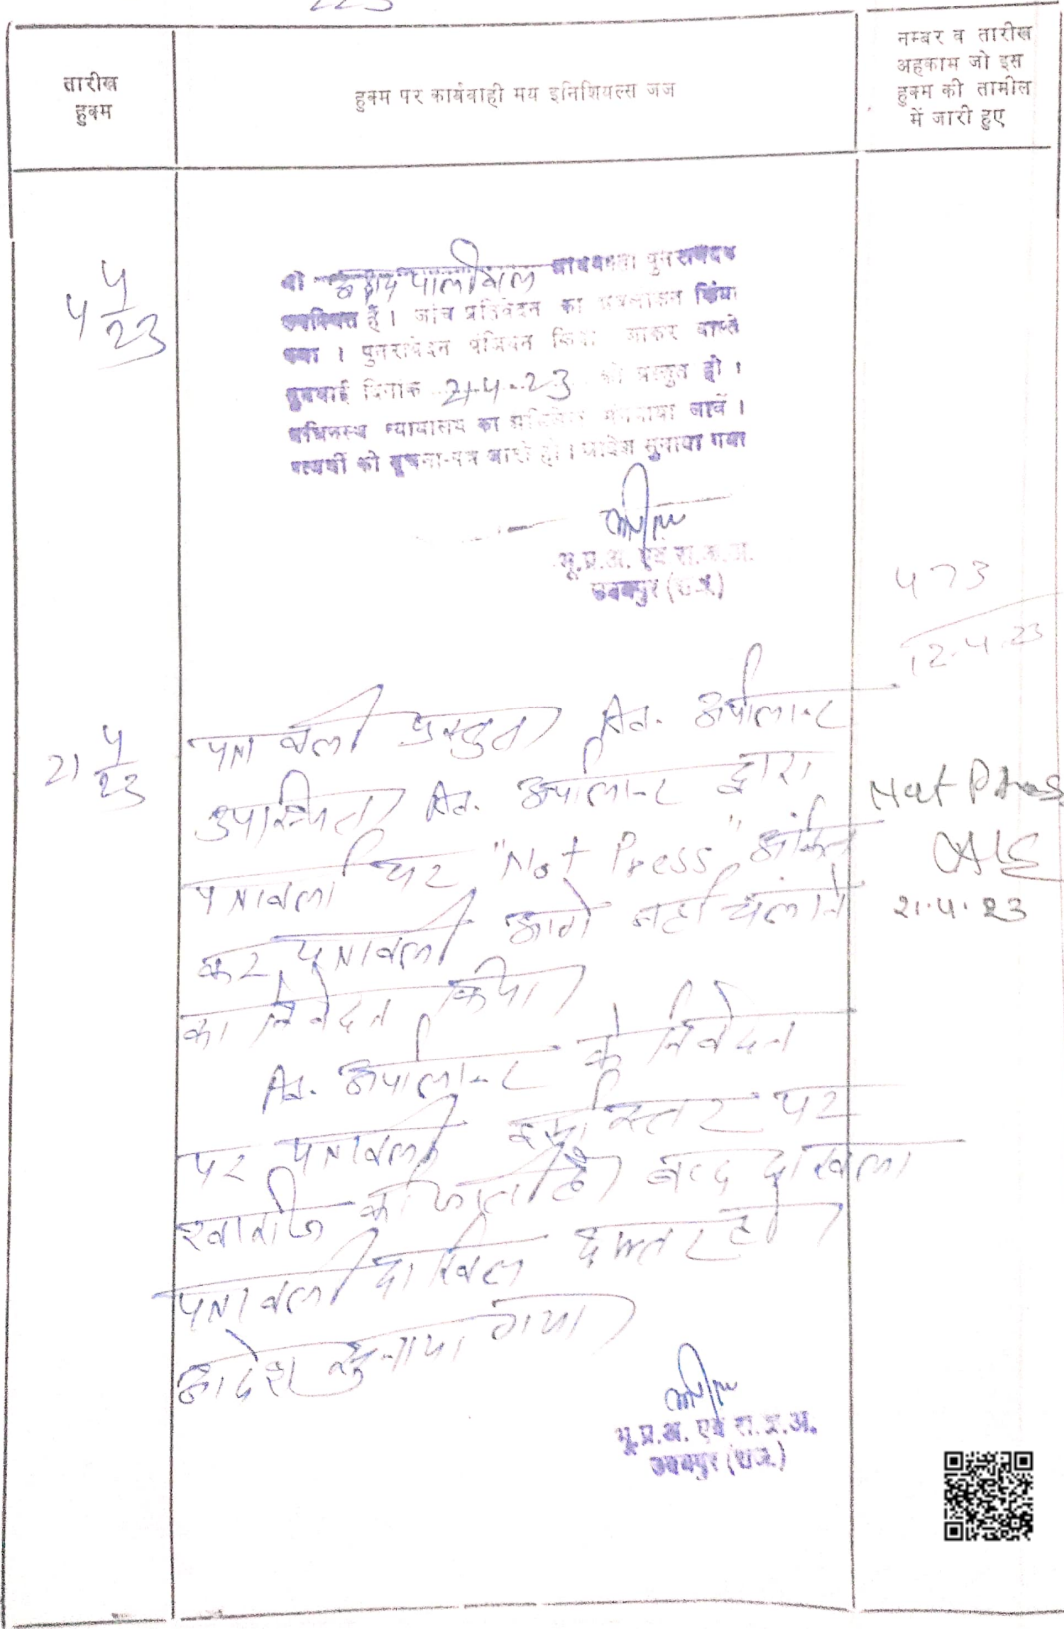 223
तारीख
हुक्म
हुक्म पर कार्यवाही मय इनिशियल्स जज
नम्बर व तारीख
अहकाम जो इस
हुक्म की तामील
में जारी हुए
4 4/23
श्री पालीवाल
उपस्थित हैं। जांच प्रतिवेदन का अवलोकन किया
गया । पुनरावेदन पंजियन किया जाकर वास्ते
सुनवाई दिनांक 21-4-23 को प्रस्तुत हो ।
अधिनस्थ न्यायालय का मंगवाया जावें ।
प्रत्यर्थी को सूचना-पत्र जारी हो । आदेश सुनाया गया
भू.प्र.अ. एवं रा.अ.अ.
उदयपुर (राज.)
473
12.4.23
21 4/23
पत्रावली प्रस्तुत। Ad. अपीलान्ट
उपस्थित। Ad. अपीलान्ट द्वारा
पत्रावली पर "Not Press" अंकित
कर पत्रावली आगे नहीं चलाने
का निवेदन किया।
Not Press
21.4.23
Ad. अपीलान्ट के निवेदन
पर पत्रावली इसी स्तर पर
खारीज की जाती है। बाद दाखला
पत्रावली दाखिल दफ्तर हो।
आदेश सुनाया गया।
भू.प्र.अ. एवं रा.अ.अ.
उदयपुर (राज.)